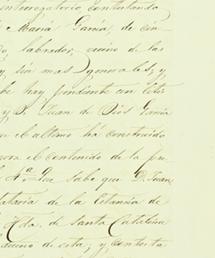 interrogatorio contestando
María García, de cin
labrador, vecino de las
y, sin mas generales, y
be hay pendiente con este
y D. Juan de Dios García
el ultimo ha construido
el contenido de la pre
Nª Que sabe que D. Juan
de la Estancia de
Hda. de Santa Catalina
vecino de esta; y contesta